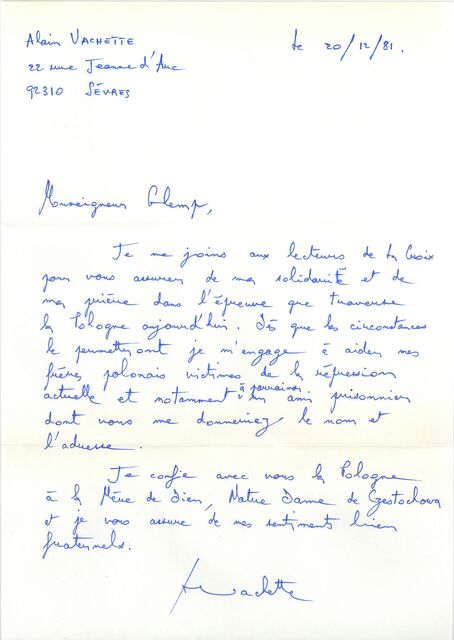 Alain VACHETTE
le 20/12/81.
22 rue Jeanne d'Arc
92310 SÈVRES
Monseigneur Glemp,
Je me joins aux lecteurs de la Croix
pour vous assurer de ma solidarité et de
ma prière dans l'épreuve que traverse
la Pologne aujourd'hui. Dès que les circonstances
le permettront je m'engage à aider mes
frères polonais victimes de la répression
actuelle et notamment à parrainer un ami prisonnier
dont vous me donneriez le nom et
l'adresse.
Je confie avec vous la Pologne
à la Mère de Dieu, Notre Dame de Czestochowa
et je vous assure de mes sentiments bien
fraternels.
Vachette